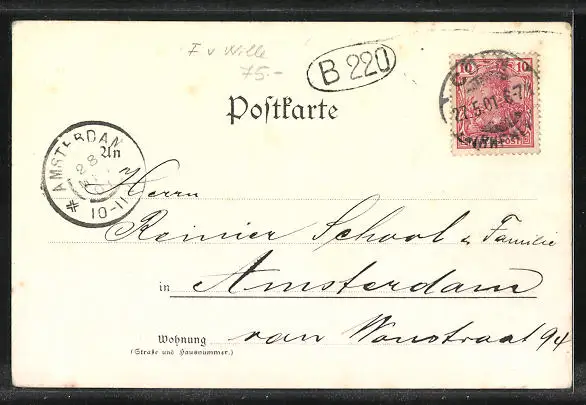 F v Wille
75.-
B 220
10 10
27.5.01.6-7N
Postkarte
AMSTERDAM
28
10-11
An
Herrn
Reinier School & Familie
in Amsterdam
Wohnung van Woustraat 94
(Straße und Hausnummer.)